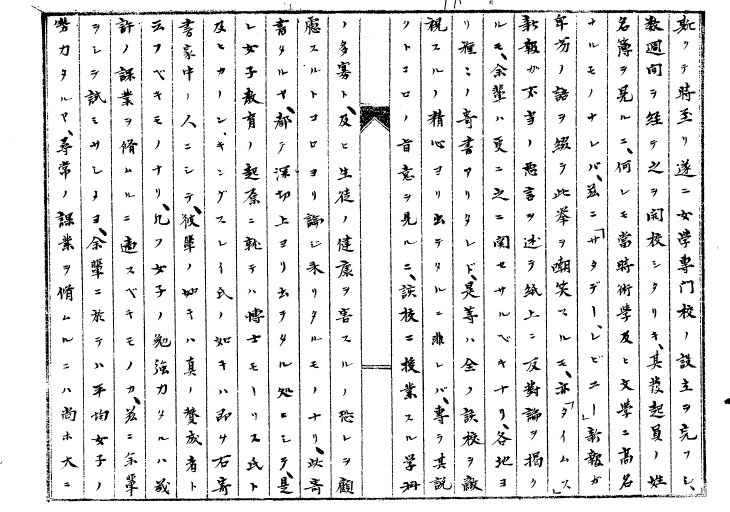 斯クテ時至リ遂ニ女学専門校ノ設立ヲ完フシ、
数週間ヲ経テ之ヲ開校シタリキ、其発起員ノ姓
名簿ヲ見ルニ、何レモ当時術学及ヒ文学ニ高名
ナルモノナレバ、茲ニ「サタデー、レビユー」新報ガ
年労ノ語ヲ綴テ此挙ヲ嘲笑スルモ、亦「タイムス」
新報ガ不当ノ悪言ヲ述テ紙上ニ反対論ヲ掲ク
ルモ、余輩ハ更ニ之ニ関セサルベキナリ、各地ヨ
リ種々ノ寄書アリタレド、是等ハ全ク該校ヲ敵
視スルノ精心ヨリ出デタルニ非レバ、専ラ其説
クトコロノ首意ヲ見ルニ、該校ニ授業スル学科
ノ多寡ト、及ヒ生徒ノ健康ヲ害スルノ恐レヲ顧
慮スルトコロヨリ論シ来リタルモノナリ、此寄
書タルヤ、都テ深切上ヨリ出ヲタル処ニシテ、是
レ女子教育ノ起原ニ就テハ博士モーリス氏ト
及ヒカノン、キングスレイ氏ノ如キハ即サ右寄
書家中ノ人ニシテ、彼輩ノ如キハ真ノ賛成者ト
云フベキモノナリ、凡フ女子ノ勉強力タルハ幾
許ノ課業ヲ脩ムルニ適スベキモノカ、茲ニ余輩
ヲシテ試ミサシメヨ、余輩ニ於テハ平均女子ノ
労力タルヤ、尋常ノ課業ヲ脩ムルニハ尚ホ大ニ